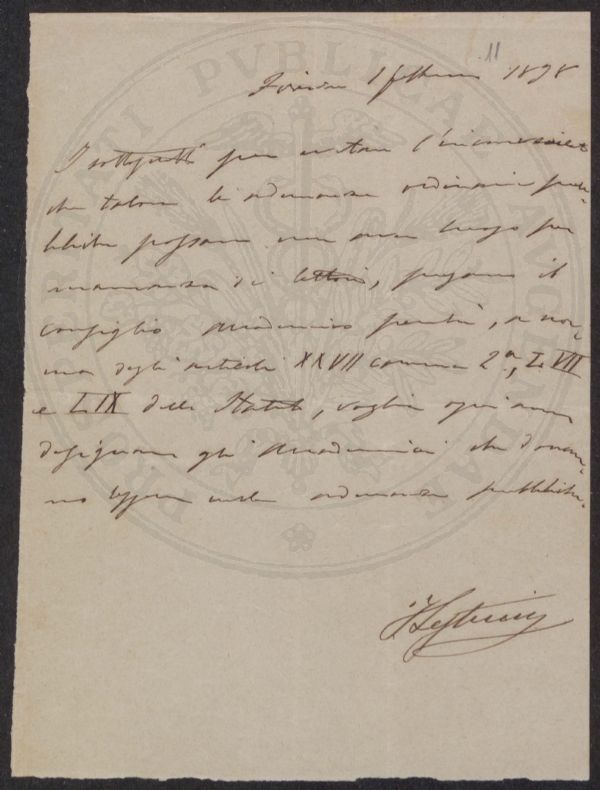 11
Firenze 1 febbraio 1898
I sottoscritti per evitare l'inconveniente
che talora le adunanze ordinarie pub-
bliche possano non aver luogo per
mancanza di lettori, pregano il
Consiglio Accademico perché, a nor-
ma degli articoli XXVII comma 2º, LVII
e LIX dello Statuto, voglia ogni anno
designare gli Accademici che dovran-
no leggere nelle adunanze pubbliche.
PROSPERITATI PVBLICAE AVGENDAE